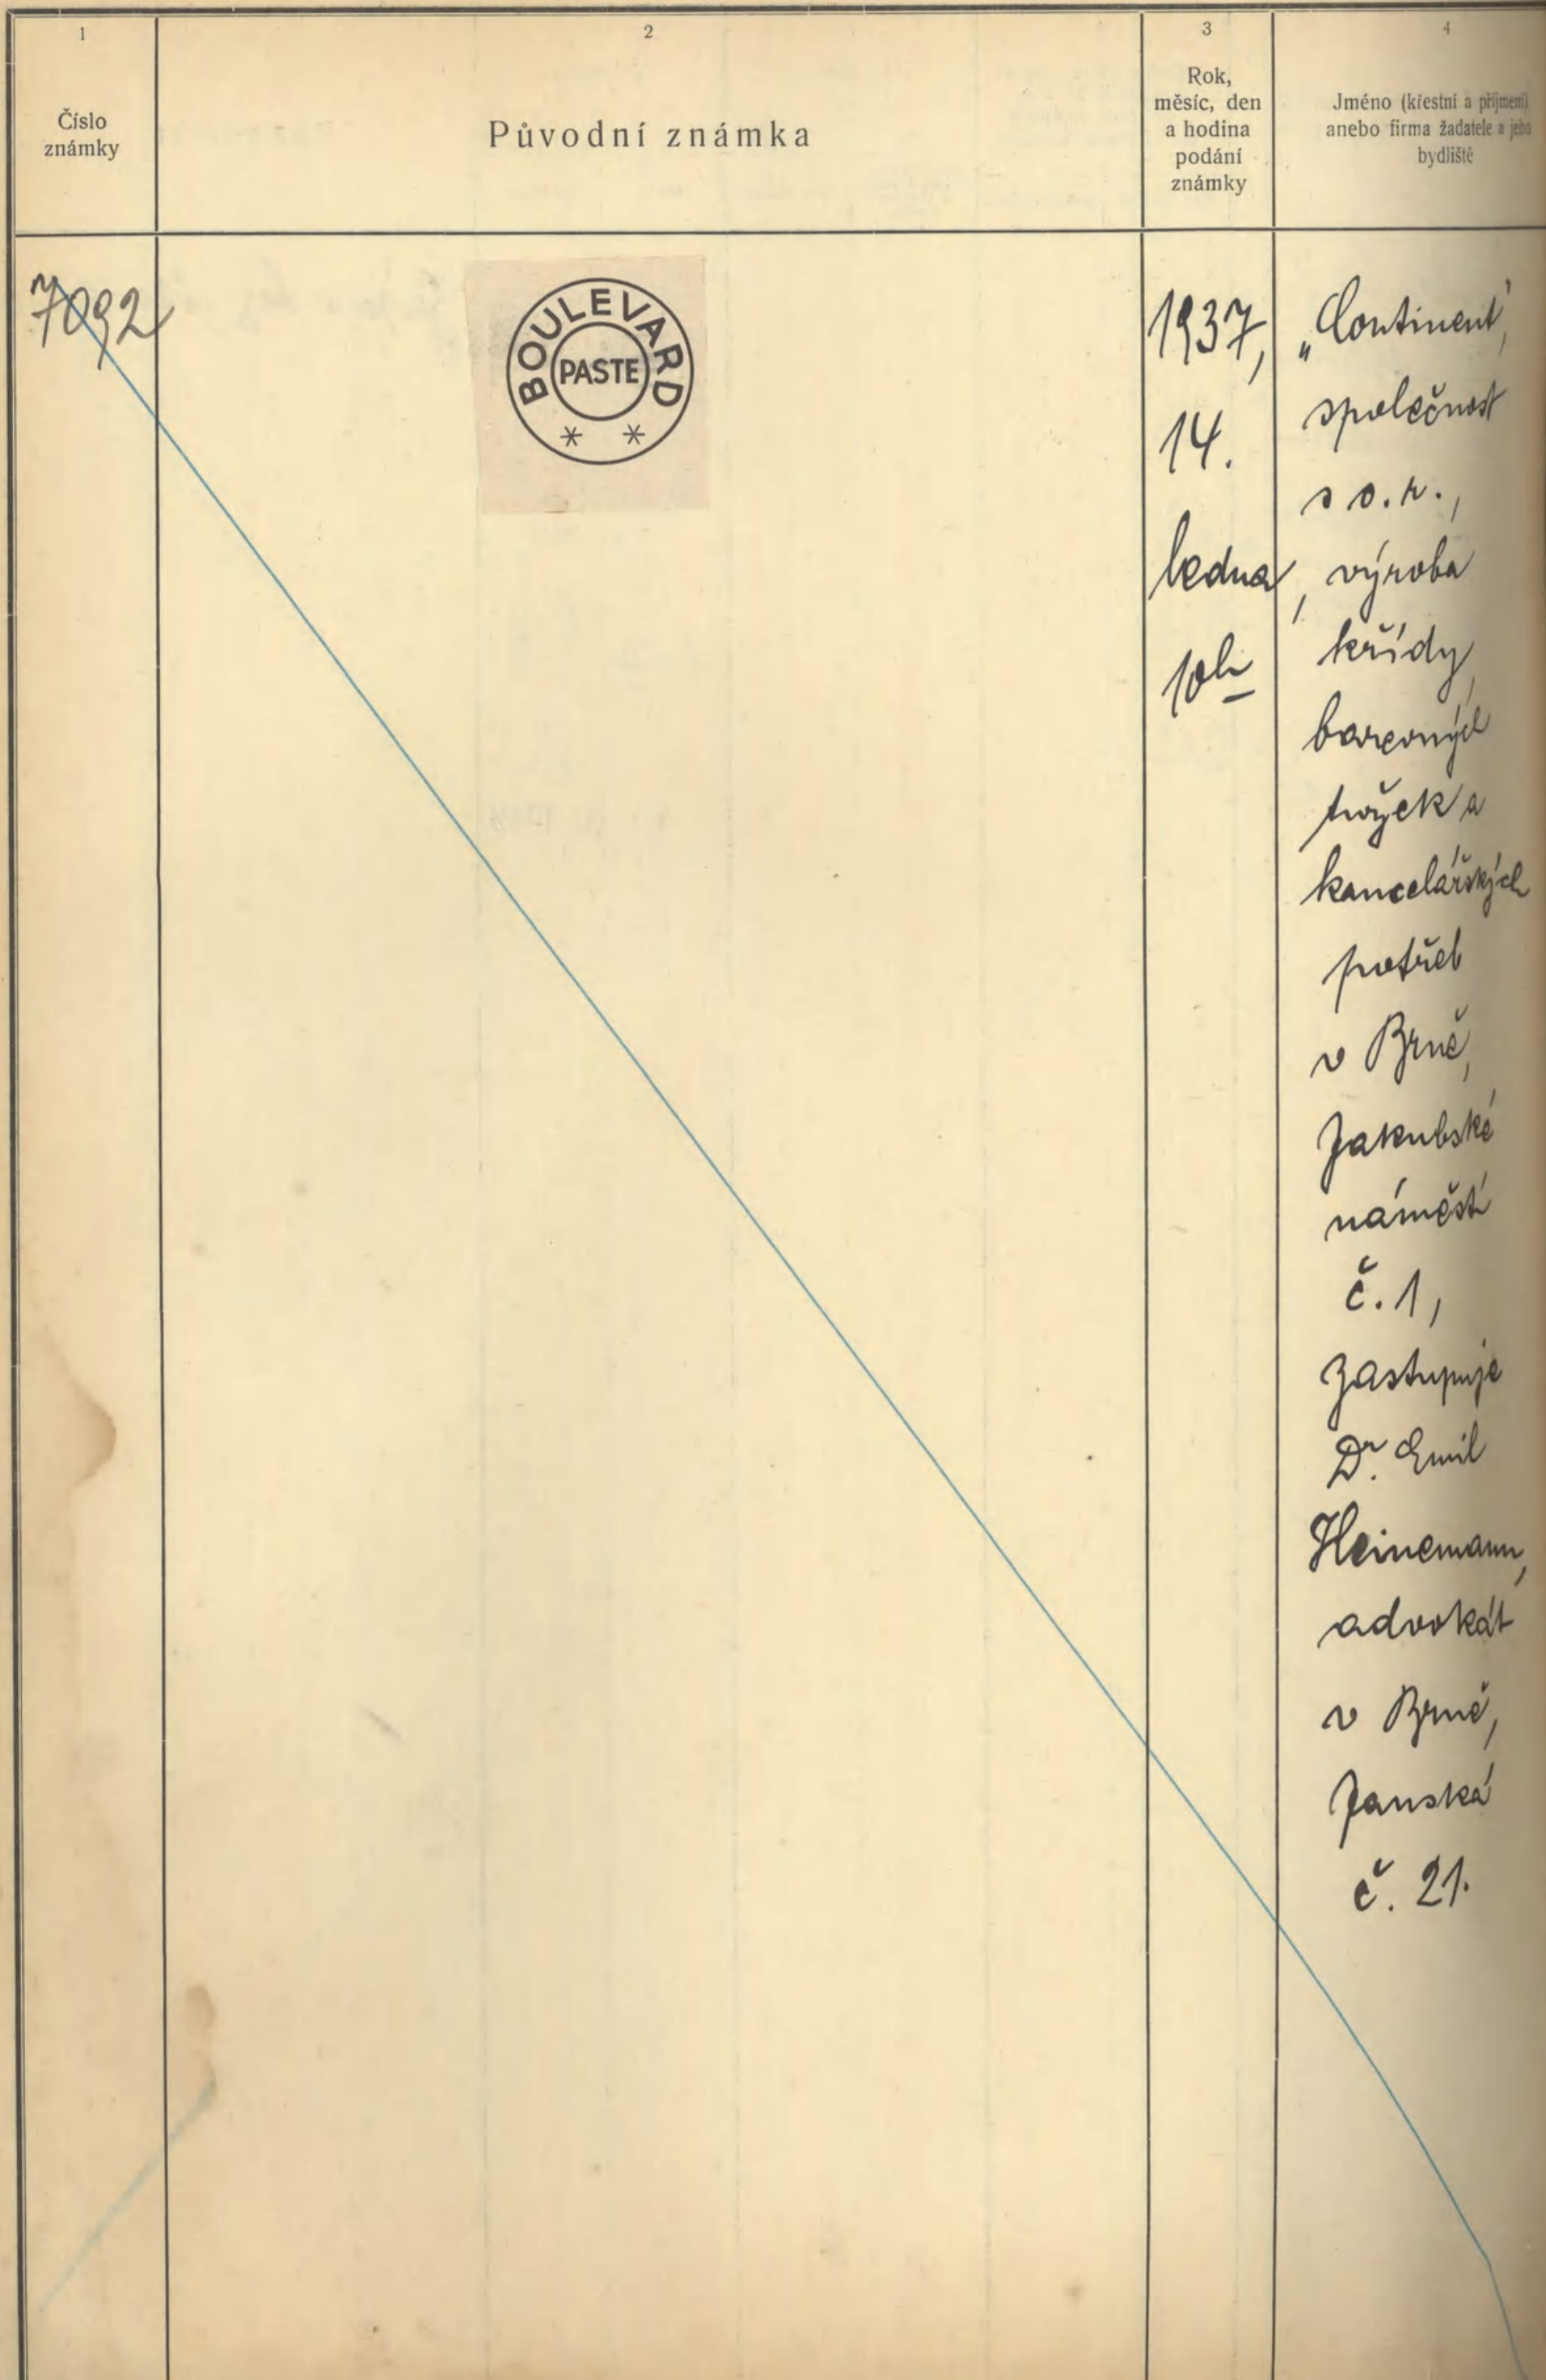 1
Číslo
známky
2
Původní známka
3
Rok,
měsíc, den
a hodina
podání
známky
4
Jméno (křestní a příjmení)
anebo firma žadatele a jeho
bydliště
7092
BOULEVARD
PASTE
* *
1937,
14.
ledna,
10h
„Continent",
společnost
s o. r.,
výroba
křídy,
barevných
tužek a
kancelářských
potřeb
v Brně,
Jakubské
náměstí
č. 1,
zastupuje
Dr. Emil
Heinemann,
advokát
v Brně,
Janská
č. 21.